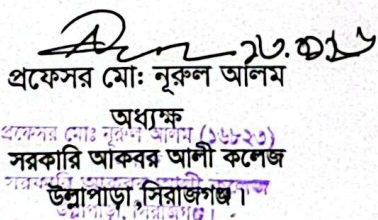 প্রফেসর মো: নূরুল আলম
অধ্যক্ষ
প্রফেসর মোঃ নূরুল আলম (১৬৮২৩)
সরকারি আকবর আলী কলেজ
সরকারি আকবর আলী কলেজ
উল্লাপাড়া,সিরাজগঞ্জ।
উল্লাপাড়া, সিরাজগঞ্জ।